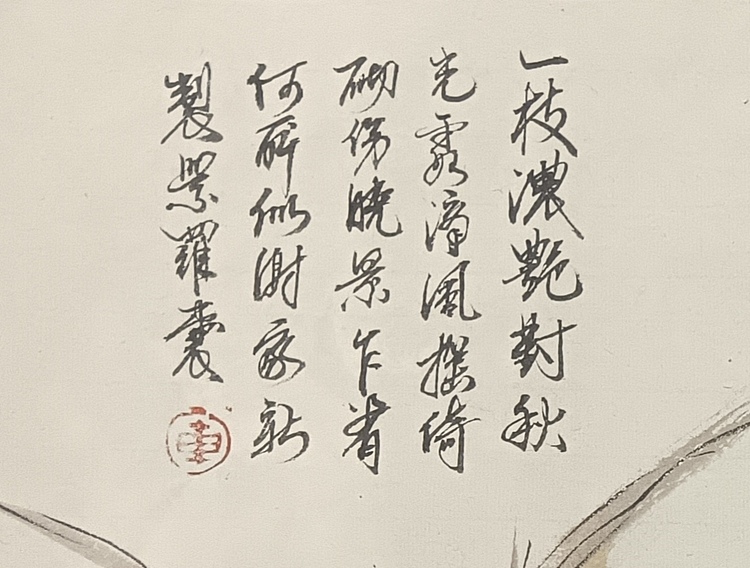 一枝濃艷對秋
光露滴風搖倚
砌傍曉景乍看
何所似謝家新
製紫羅囊